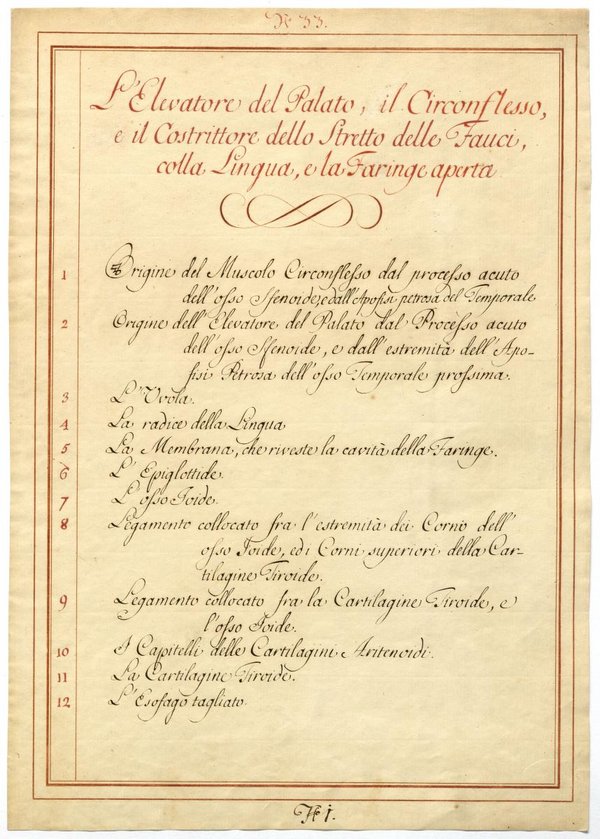 Nº 33.
L'Elevatore del Palato, il Circonflesso,
e il Costrittore dello Stretto delle Fauci,
colla Lingua, e la Faringe aperta
1 Origine del Muscolo Circonflesso dal processo acuto
dell'osso Sfenoide, e dall'Apofisi petrosa del Temporale
2 Origine dell'Elevatore del Palato dal Procèsso acuto
dell'osso Sfenoide, e dall'estremità dell'Apo-
fisi Petrosa dell'osso Temporale prossima.
3 L'Uvola.
4 La radice della Lingua
5 La Membrana, che riveste la cavità della Faringe.
6 L'Epiglottide
7 L'osso Joide.
8 Legamento collocato fra l'estremità dei Corni dell'
osso Joide, ed i Corni superiori della Car-
tilagine Tiroide.
9 Legamento collocato fra la Cartilagine Tiroide, e
l'osso Joide.
10 I Capitelli delle Cartilagini Aritenoidi.
11 La Cartilagine Tiroide.
12 L'Esofago tagliato